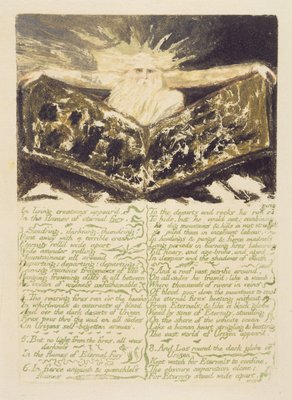 In living creations appear'd
In the flames of eternal fury.
3. Sund'ring, dark'ning, thund'ring!
Rent away with a terrible crash
Eternity roll'd wide apart
Wide asunder rolling
Mountainous all around
Departing; departing; departing:
Leaving ruinous fragments of life
Hanging frowning cliffs & all between
An ocean of voidness unfathomable
4. The roaring fires ran o'er the heav'ns
In whirlwinds & cataracts of blood
And o'er the dark desarts of Urizen
Fires pour thro' the void on all sides
On Urizens self-begotten armies.
5. But no light from the fires, all was
darkness
In the flames of Eternal fury
6. In fierce anguish & quenchless
flames
To the desarts and rocks he ran
raging
To hide, but he could not: combining
He dug mountains & hills in vast strength
He piled them in incessant labour,
In howlings & pangs & fierce madness
Long periods in burning fires labouring
Till hoary, and age-broke, and aged,
In despair and the shadows of death.
7. And a roof, vast petrific around,
On all sides he fram'd: like a womb;
Where thousands of rivers in veins
Of blood pour down the mountains to cool
The eternal fires beating without
From Eternals; & like a black globe
View'd by sons of Eternity, standing
On the shore of the infinite ocean
Like a human heart strugling & beating
The vast world of Urizen appear'd.
8. And Los round the dark globe of
Urizen,
Kept watch for Eternals to confine,
The obscure separation alone;
For Eternity stood wide apart,